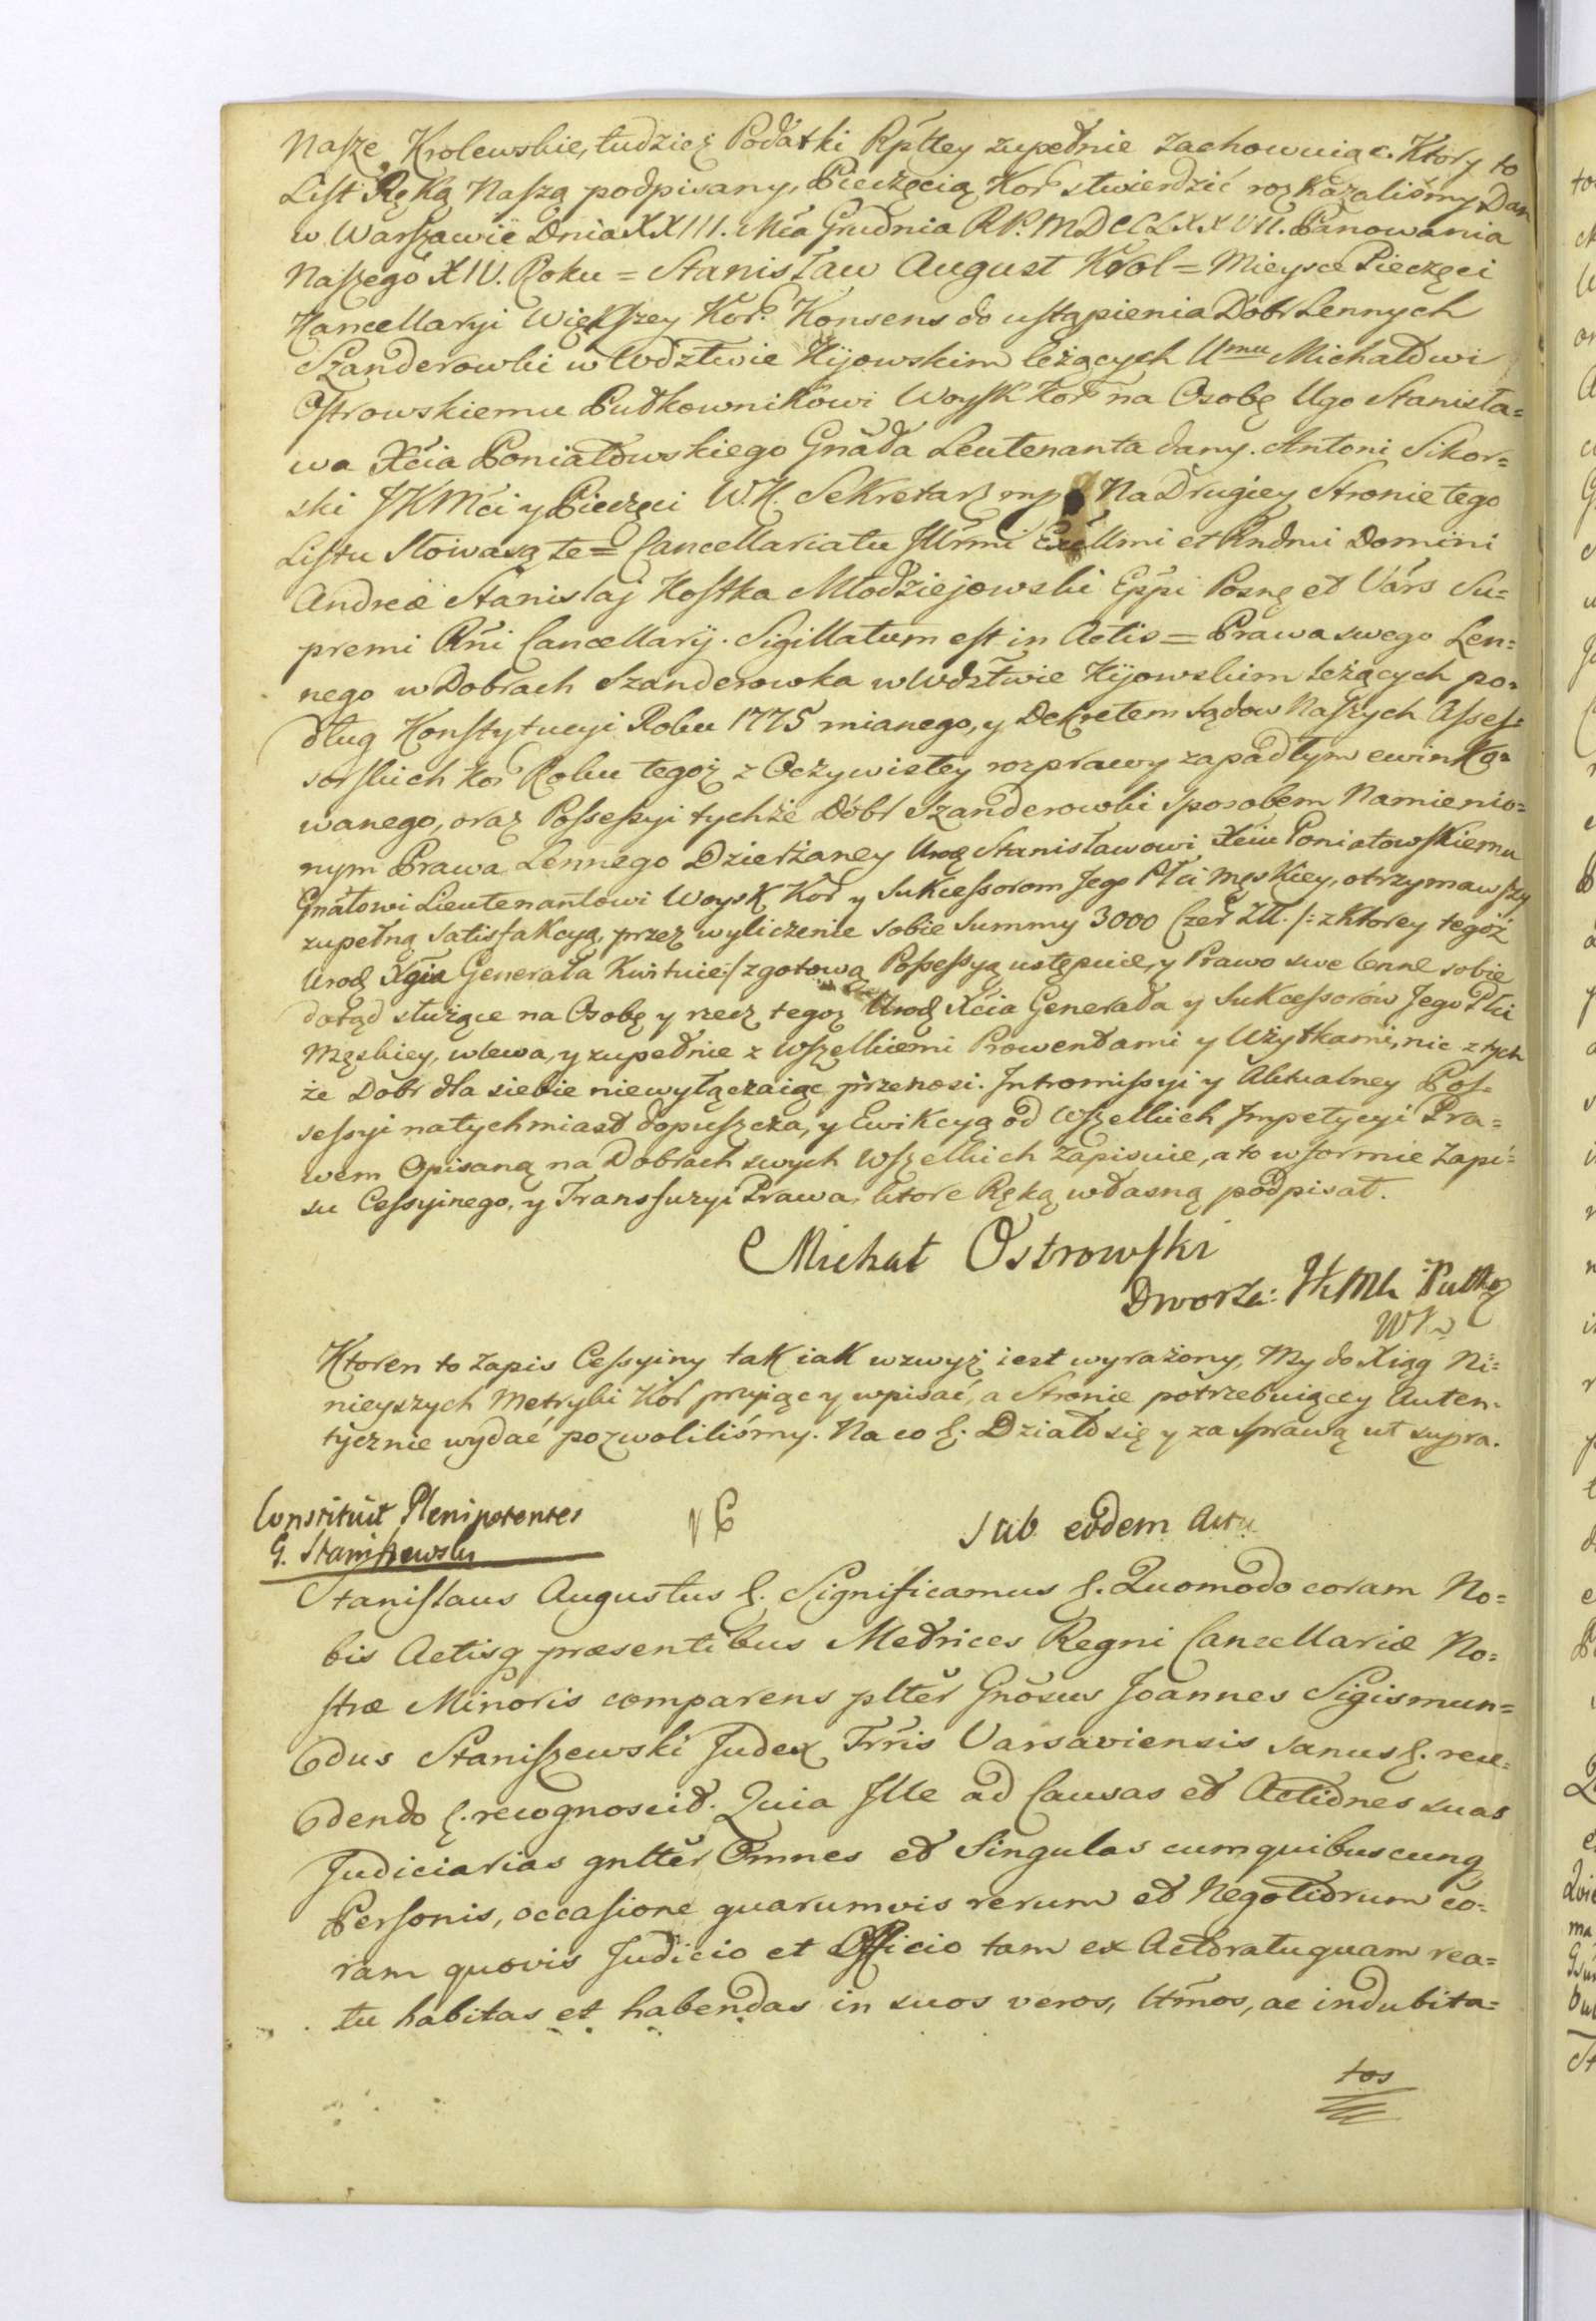 Nasze Krolewskie, tudzież Podatki Rpltey zupełnie zachowuiąc. Ktory to
List Ręką Naszą podpisany, Pieczęcią Kor stwierdzić rozkazaliśmy Dan
w Warszawie Dnia XXIII. Mca Grudnia RP. MDCCLXXVII. Panowania
Naszego XIV. Roku = Stanisław August Krol = Mieysce Pieczęci
Kancellaryi Większey Kor. Konsens do ustąpienia Dobr Lennych
Szanderowki w Wdztwie Kijowskim leżących Umu Michałowi
Ostrowskiemu Pułkownikowi Woysk Kor na Osobę Ugo Stanisła=
wa Xcia Poniatowskiego Gnała Leutenanta dany. Antoni Sikor=
ski JKMci y Pieczęci W.K. Sekretarz mp Na Drugiey Stronie tego
Listu Słowa są te = Cancellariatu Illrmi Excellmi et Rndmi Domini
Andreæ Stanislaj Kostka Młodziejowski Eppi Posnę et Vars Su=
premi Rni Cancellarij. Sigillatum est in Actis = Prawa swego Len=
nego w Dobrach Szanderowka w Wdztwie Kijowskim leżących po=
dług Konstytucyi Roku 1775 mianego, y Dekretem Sądow Naszych Asses=
sorskich Kor Roku tegoż z Oczywistey rozprawy zapadłym ewinko=
wanego, oraz Possessyi tychże Dóbr Szanderowki sposobem Namienio=
nym Prawa Lennego Dzierżaney Urog Stanisławowi Xciu Poniatowskiemu
Gnałowi Lieutenantowi Woysk Kor y Sukcessorom Jego Płci męskiey, otrzymawszy
zupełną satisfakcyą, przez wyliczenie sobie Summy 3000 Czer Zll. /: z ktorey tegoż
Urodz Xcia Generała kwituie :/ z gotową Possessyą ustępuie, y Prawo swe lenne sobie
dotąd służące na Osobę y rzecz tegoz Urodz Xcia Generała y Sukcessorów Jego Płci
Męskiey, wlewa, y zupełnie z wszelkiemi Prowentami y Użytkami, nic z tych
że Dobr dla siebie niewyłączaiąc przenosi. Intromissyi y Aktualney Pos=
sessyi natychmiast dopuszcza, y Ewikcyą od wszelkich Impetycyi Pra=
wem Opisaną na Dobrach swych wszelkich zapisuie, a to w formie Zapi=
su Cessyinego, y Transfuzyi Prawa, ktore Ręką własną podpisał.
Michał Ostrowski
Dworza: JKMci Pułko
WK
Ktoren to Zapis Cessyiny tak iak wzwyż iest wyrażony, My do Xiąg Ni=
nieyszych Metryki Kor przyiąc y wpisać, a Stronie potrzebuiącey Auten=
tycznie wydać pozwoliliśmy. Na co &. Działo się y za sprawą ut supra.
Constituit Plenipotentes
G. Staniszewski
Sub eodem Actu
Stanislaus Augustus &. Significamus &. Quomodo coram No=
bis Actisq præsentibus Metrices Regni Cancellariæ No=
stræ Minoris comparens pltěr Gnősus Joannes Sigismun=
dus Staniszewski Judex Trris Varsaviensis sanus &. rece=
dendo &. recognoscit. Quia Ille ad Causas et Actiones suas
Judiciarias gnltěr Omnes et Singulas cum quibuscunq
Personis, occasione quarumvis rerum et Negotiorum co=
ram quovis Judicio et Officio tam ex Actoratu quam rea=
tu habitas et habendas in suos veros, Ltmos, ac indubita=
tos